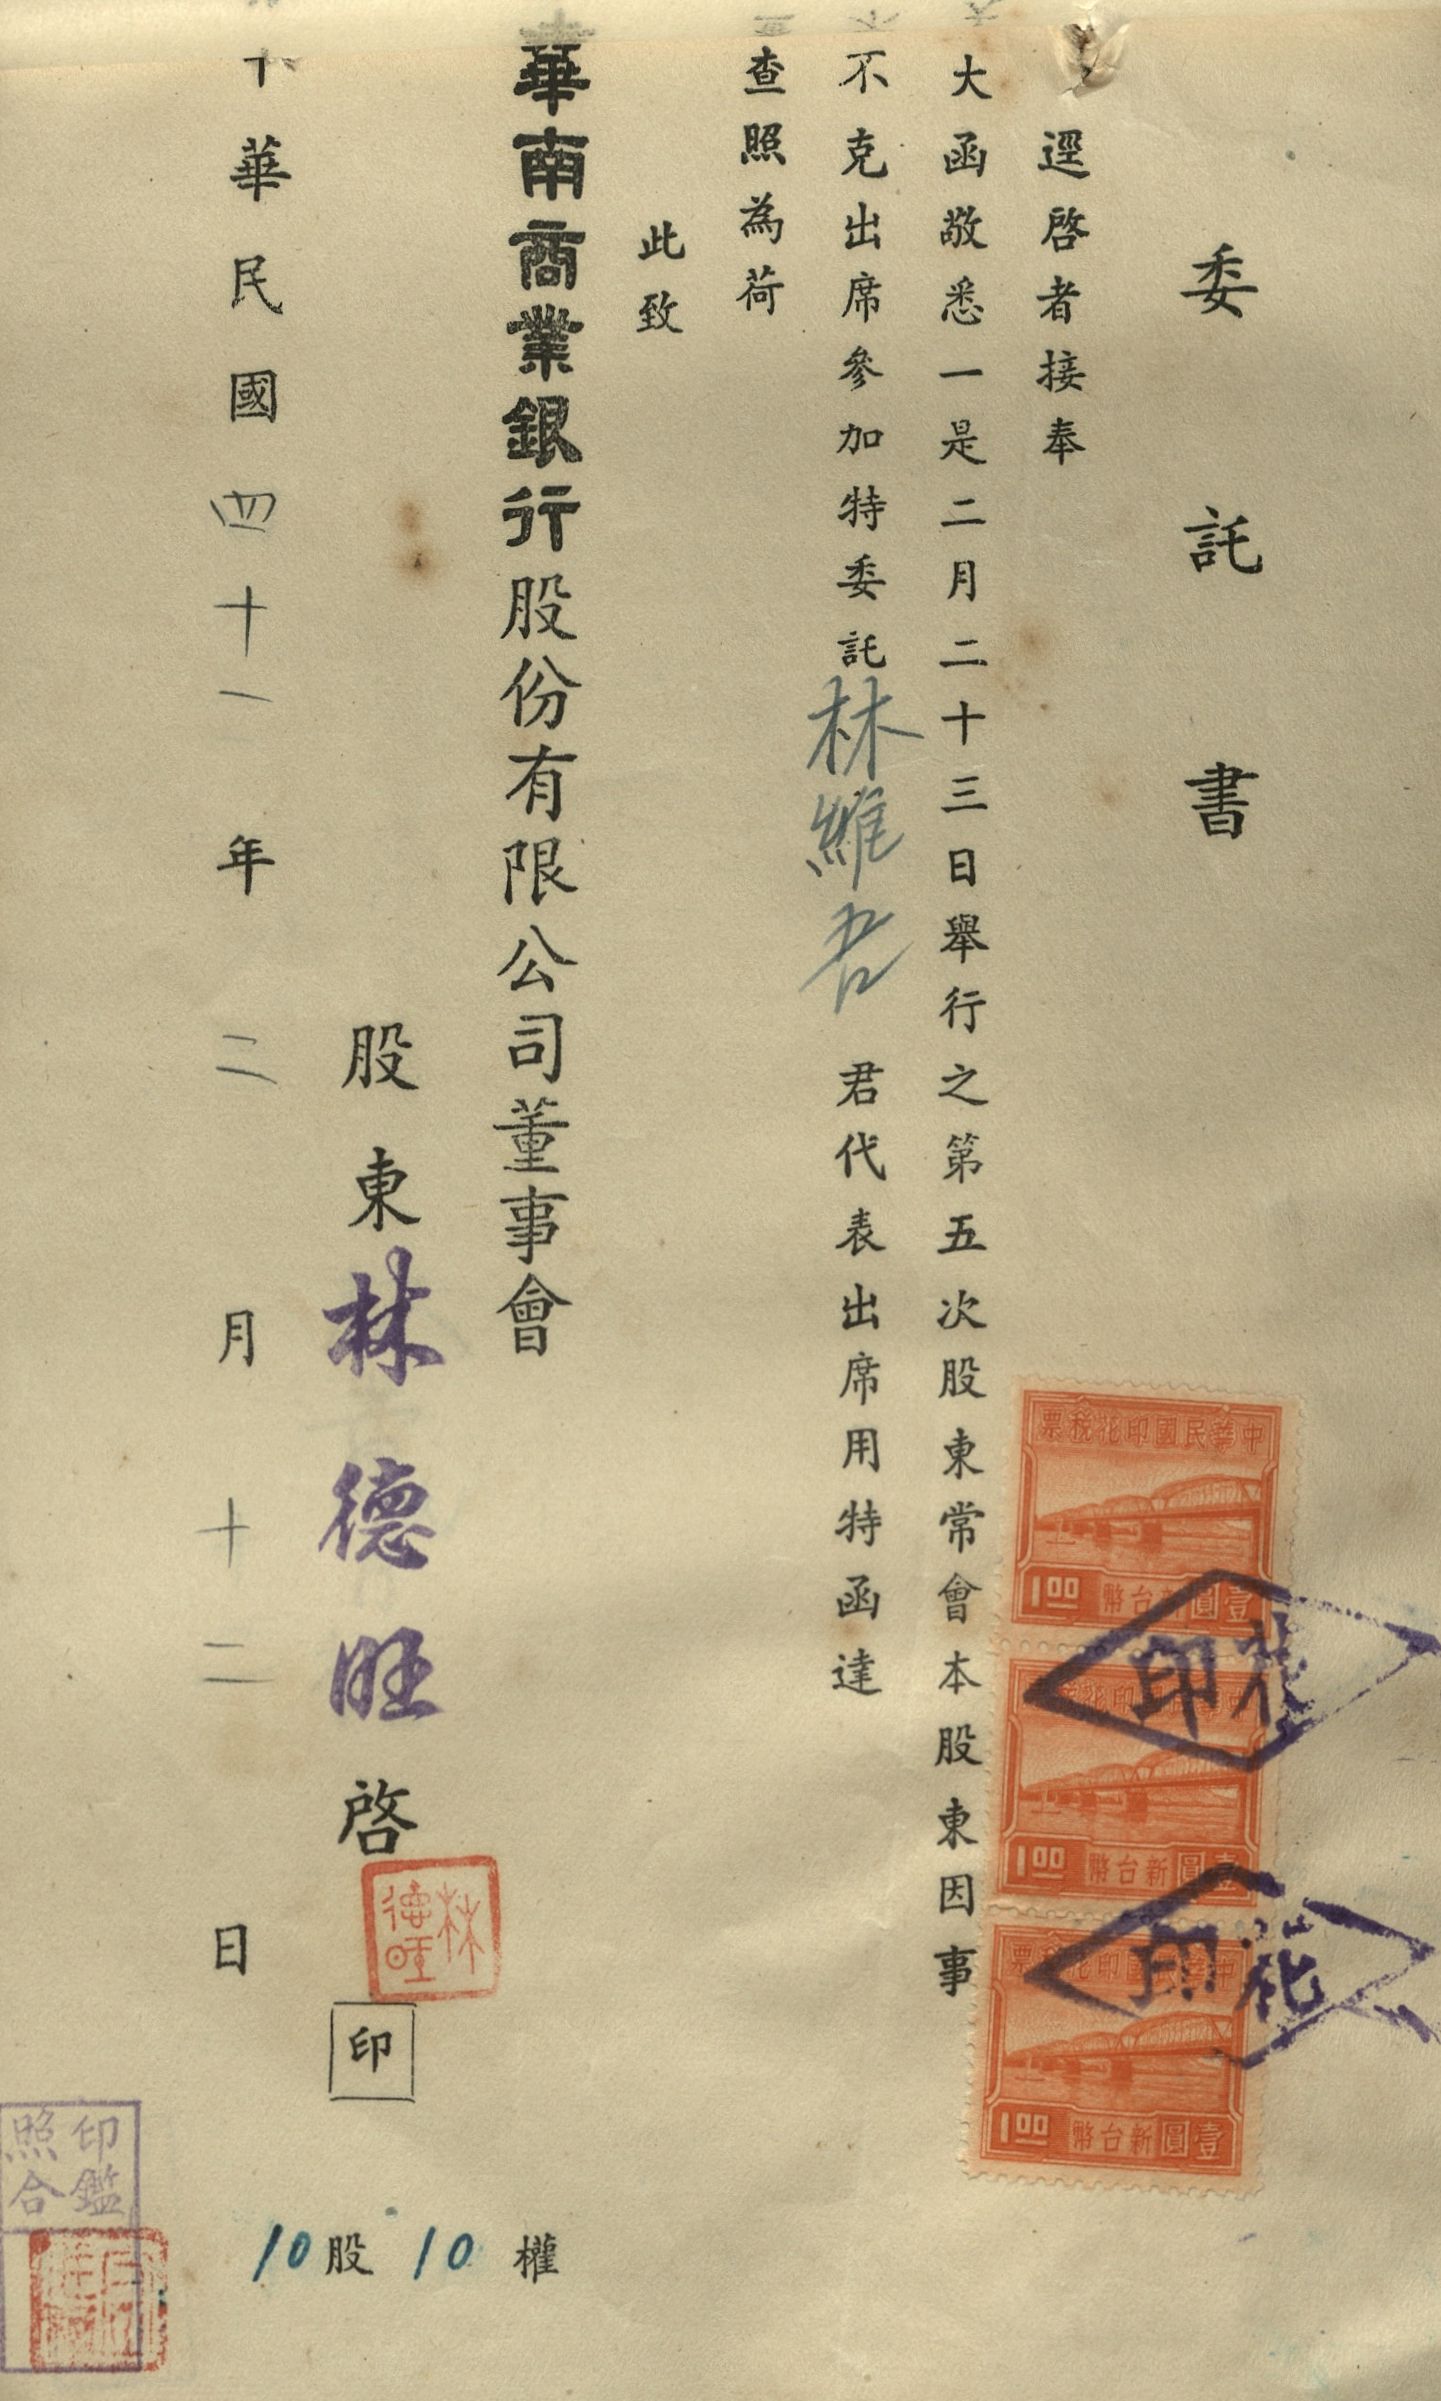 委託書
逕啓者接奉
大函敬悉一是二月二十三日舉行之第五次股東常會本股東因事
不克出席參加特委託林維吾君代表出席用特函達
查照為荷
此致
華南商業銀行股份有限公司董事會
股東林德旺啓
林德旺
印
中華民國四十一年二月十二日
10股10權
印鑑
照合
中華民國印花稅票
壹圓新台幣
1.00
中華民國印花稅票
壹圓新台幣
1.00
中華民國印花稅票
壹圓新台幣
1.00
花印
花印